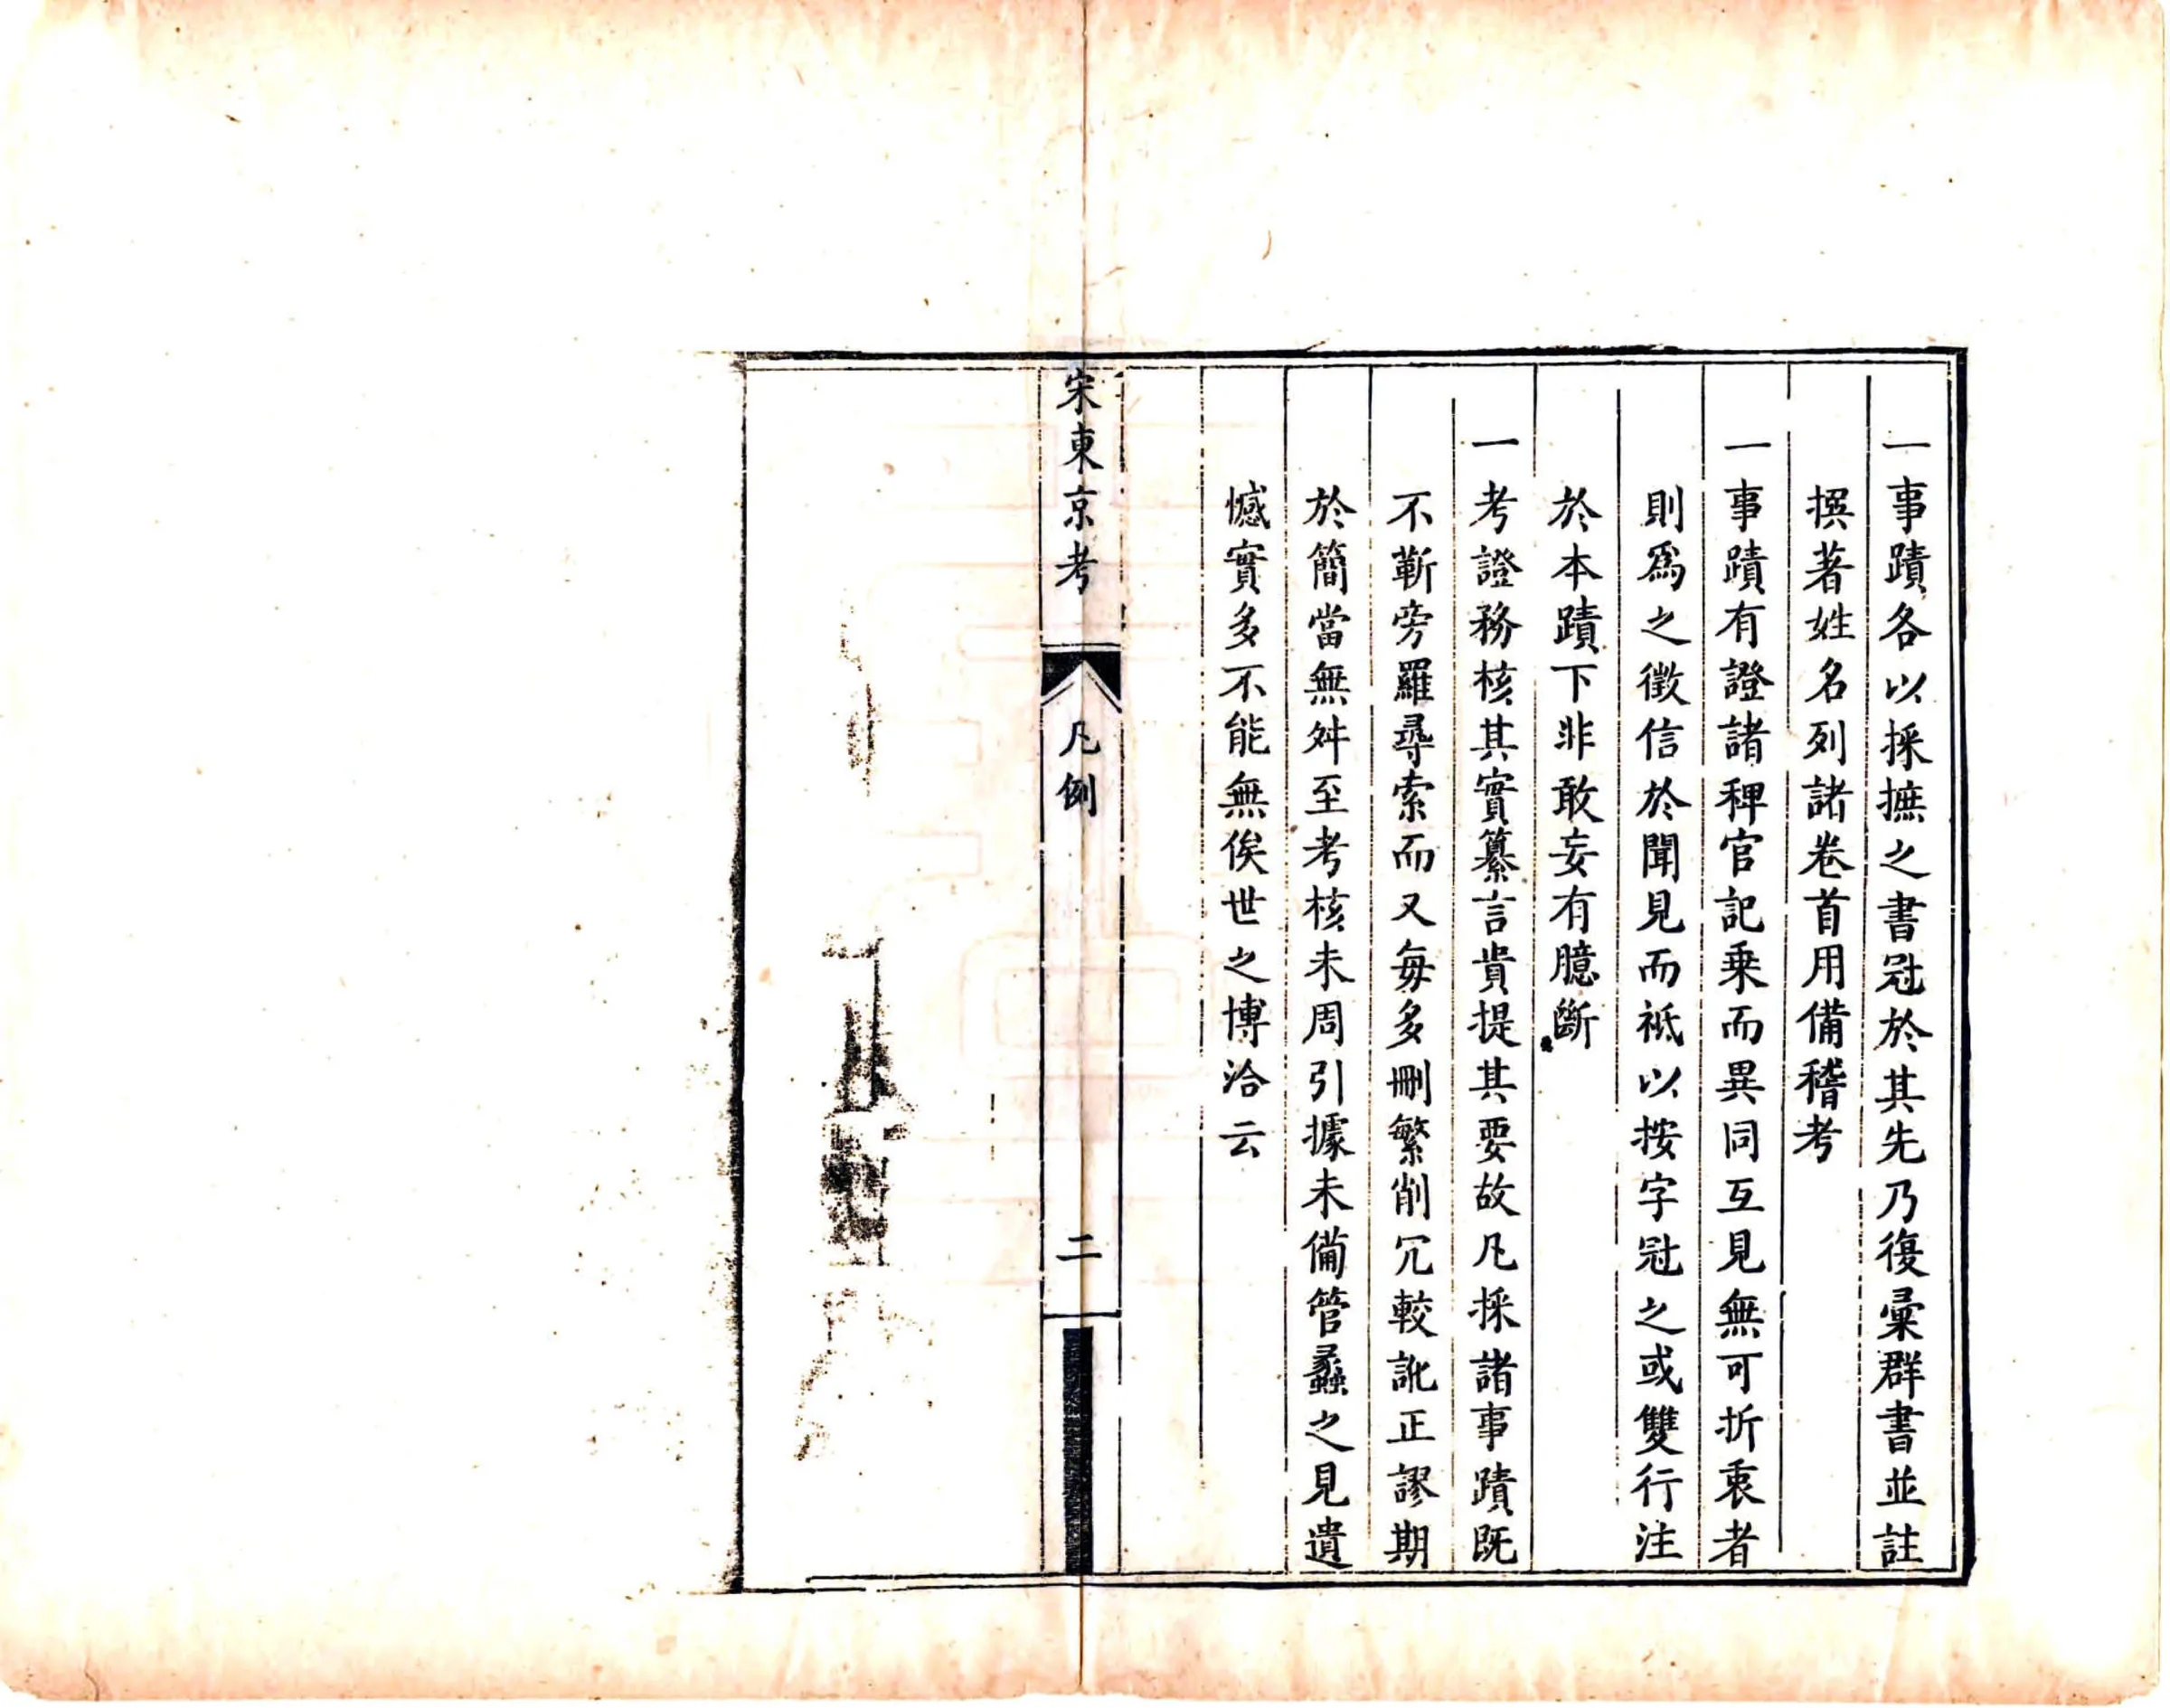 一事蹟各以採摭之書冠於其先乃復彚群書並註
撰著姓名列諸卷首用備稽考
一事蹟有證諸稗官記乗而異同互見無可折衷者
則爲之徵信於聞見而袛以按字冠之或雙行注
於本蹟下非敢妄有臆斷
一考證務核其實纂言貴提其要故凡採諸事蹟既
不蘄旁羅尋索而又毎多刪繁削冗較訛正謬期
於簡當無舛至考核未周引據未備管蠡之見遺
憾實多不能無俟世之博洽云
宋東京考
凡例
二